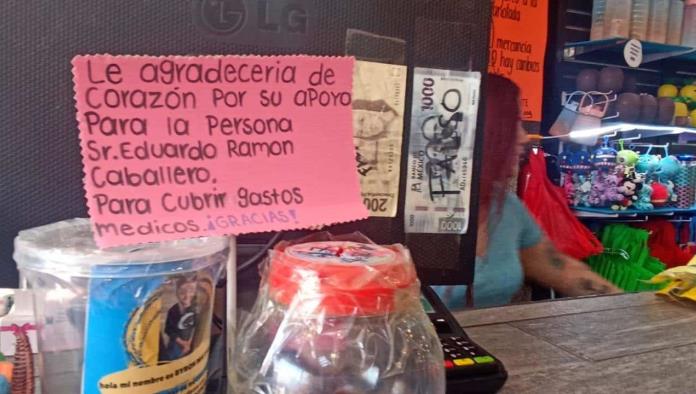 LG
Le agradeceria de
Corazón Por su aPoyo
Para la Persona
Sr. Eduardo Ramon
Caballero.
Para Cubrir gastos
medicos. ¡GRACIAS!
200
BANCO DE MÉXICO
1000
FALSO
1000
mercancia
hay cambios
hola mi nombre es